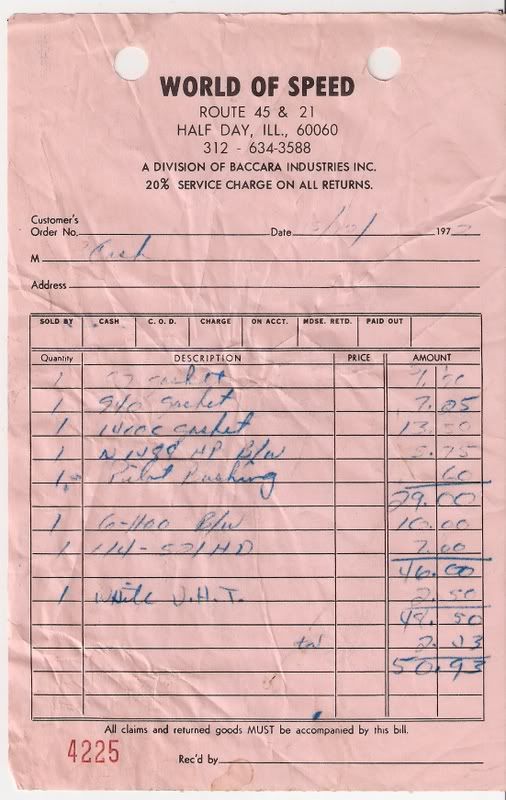 WORLD OF SPEED
ROUTE 45 & 21
HALF DAY, ILL., 60060
312 - 634-3588
A DIVISION OF BACCARA INDUSTRIES INC.
20% SERVICE CHARGE ON ALL RETURNS.
Customer's
Order No. Date 197
M Cash
Address
SOLD BY CASH C. O. D. CHARGE ON ACCT. MDSE. RETD. PAID OUT
Quantity DESCRIPTION PRICE AMOUNT
1 gasket
1 940 gasket 7.05
1 gasket 13.50
1 HP B/W 5.75
1 Pilot Bushing 60
29.00
1 B/W 10.00
1 114-521HD 7.00
46.00
1 White V.H.T. 2.50
48.50
tax 2.43
50.93
All claims and returned goods MUST be accompanied by this bill.
4225 Rec'd by